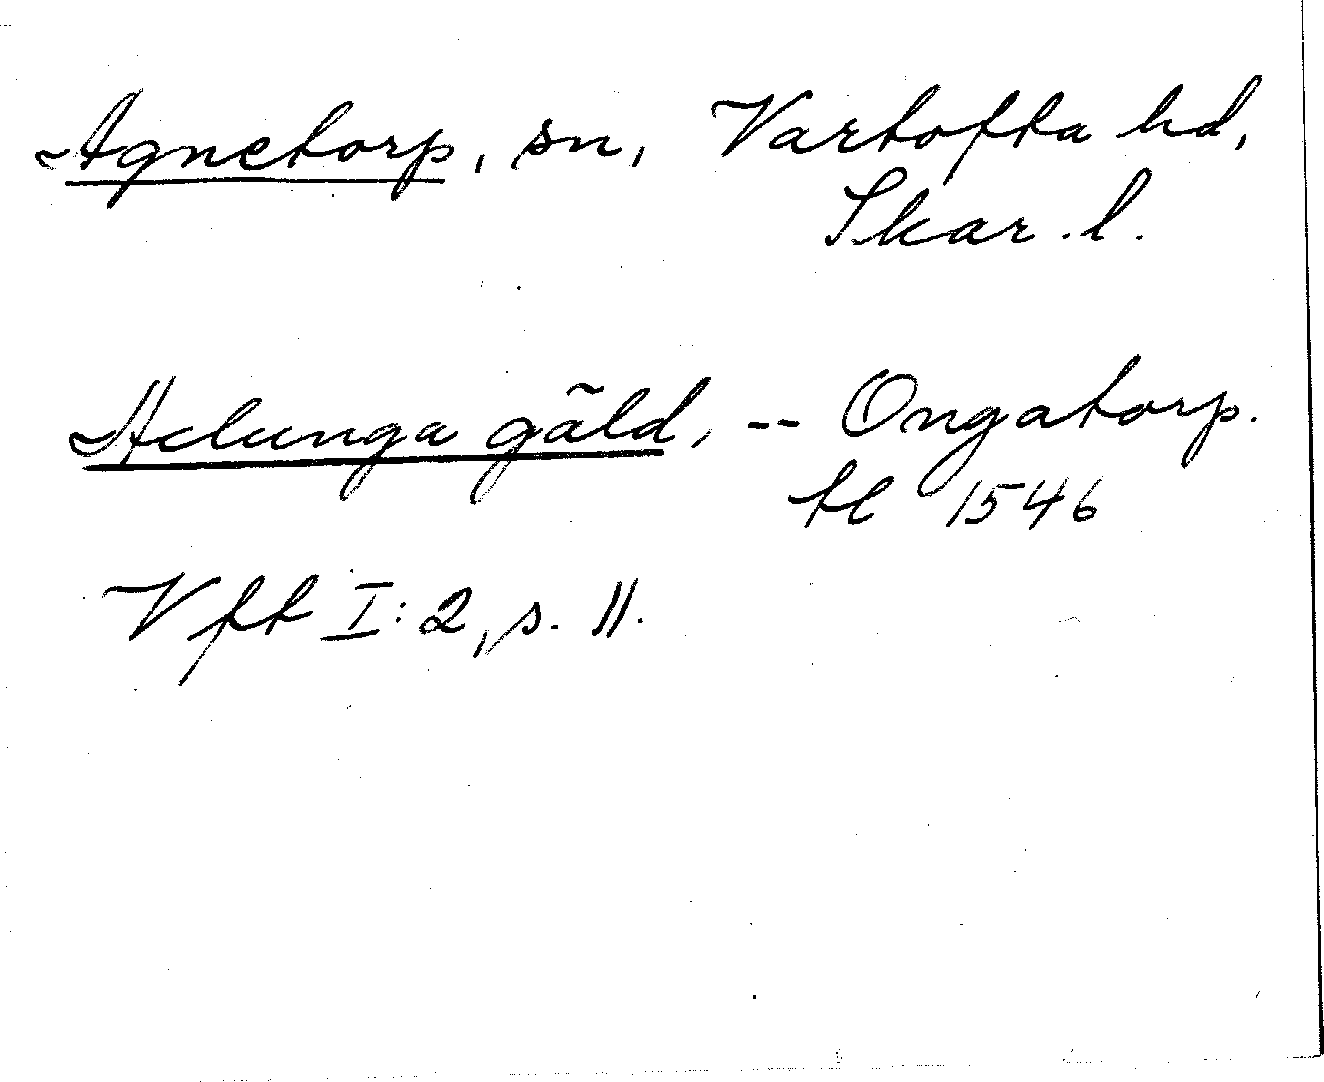 Agnetorp, sn, Vartofta hd,
Skar. l.
Helunga gäld, -- Ongatorp.
tl 1546
Vft I:2, s. 11.